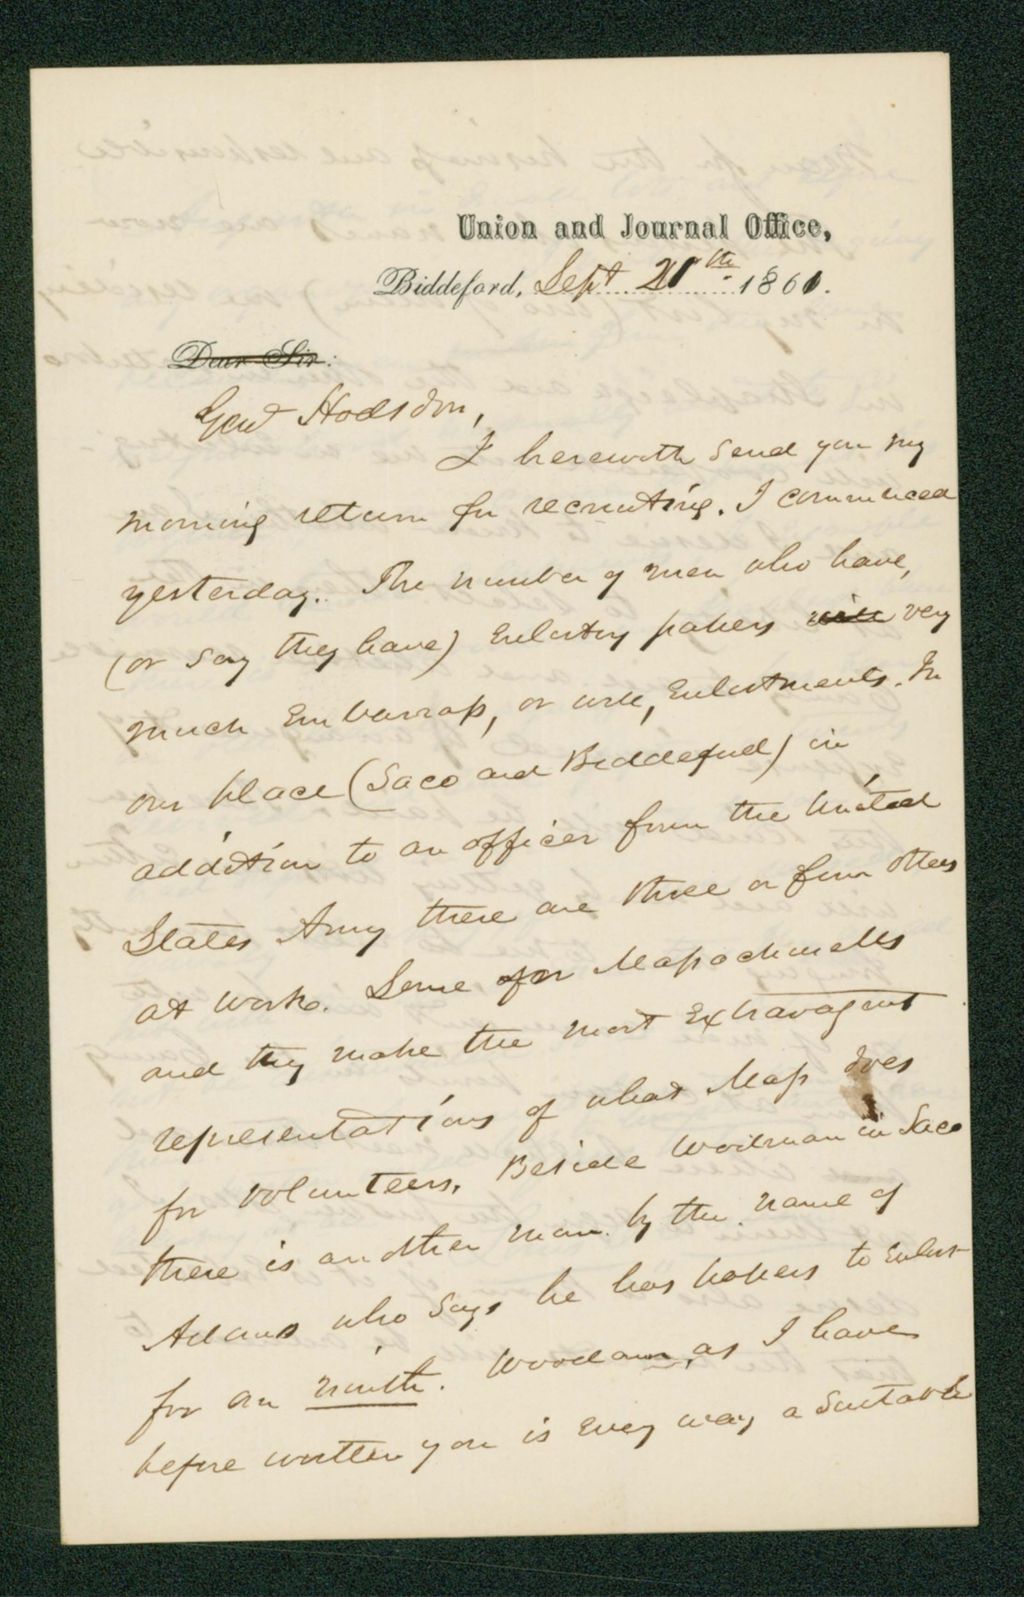 Union and Journal Office,
Biddeford, Sept 20th 1861.
Dear Sir:
Genl Hodsdon,
I herewith send you my
morning return for recruiting. I commenced
yesterday. The number of men who have,
(or say they have) Enlisting papers will very
much Embarrass, or will, Enlistments. In
our place (Saco and Biddeford) in
addition to an officer from the United
States Army there are three or four others
at work. Some for Massachusetts
and they make the most Extravagant
representations of what Mass does
for volunteers. Beside Woodman in Saco
there is another man by the name of
Adams who says he has papers to Enlist
for an ninth. Woodman, as I have
before written you is every way a suitable